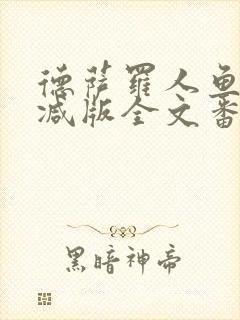 德萨罗人鱼
减版全文番
黑暗神帝